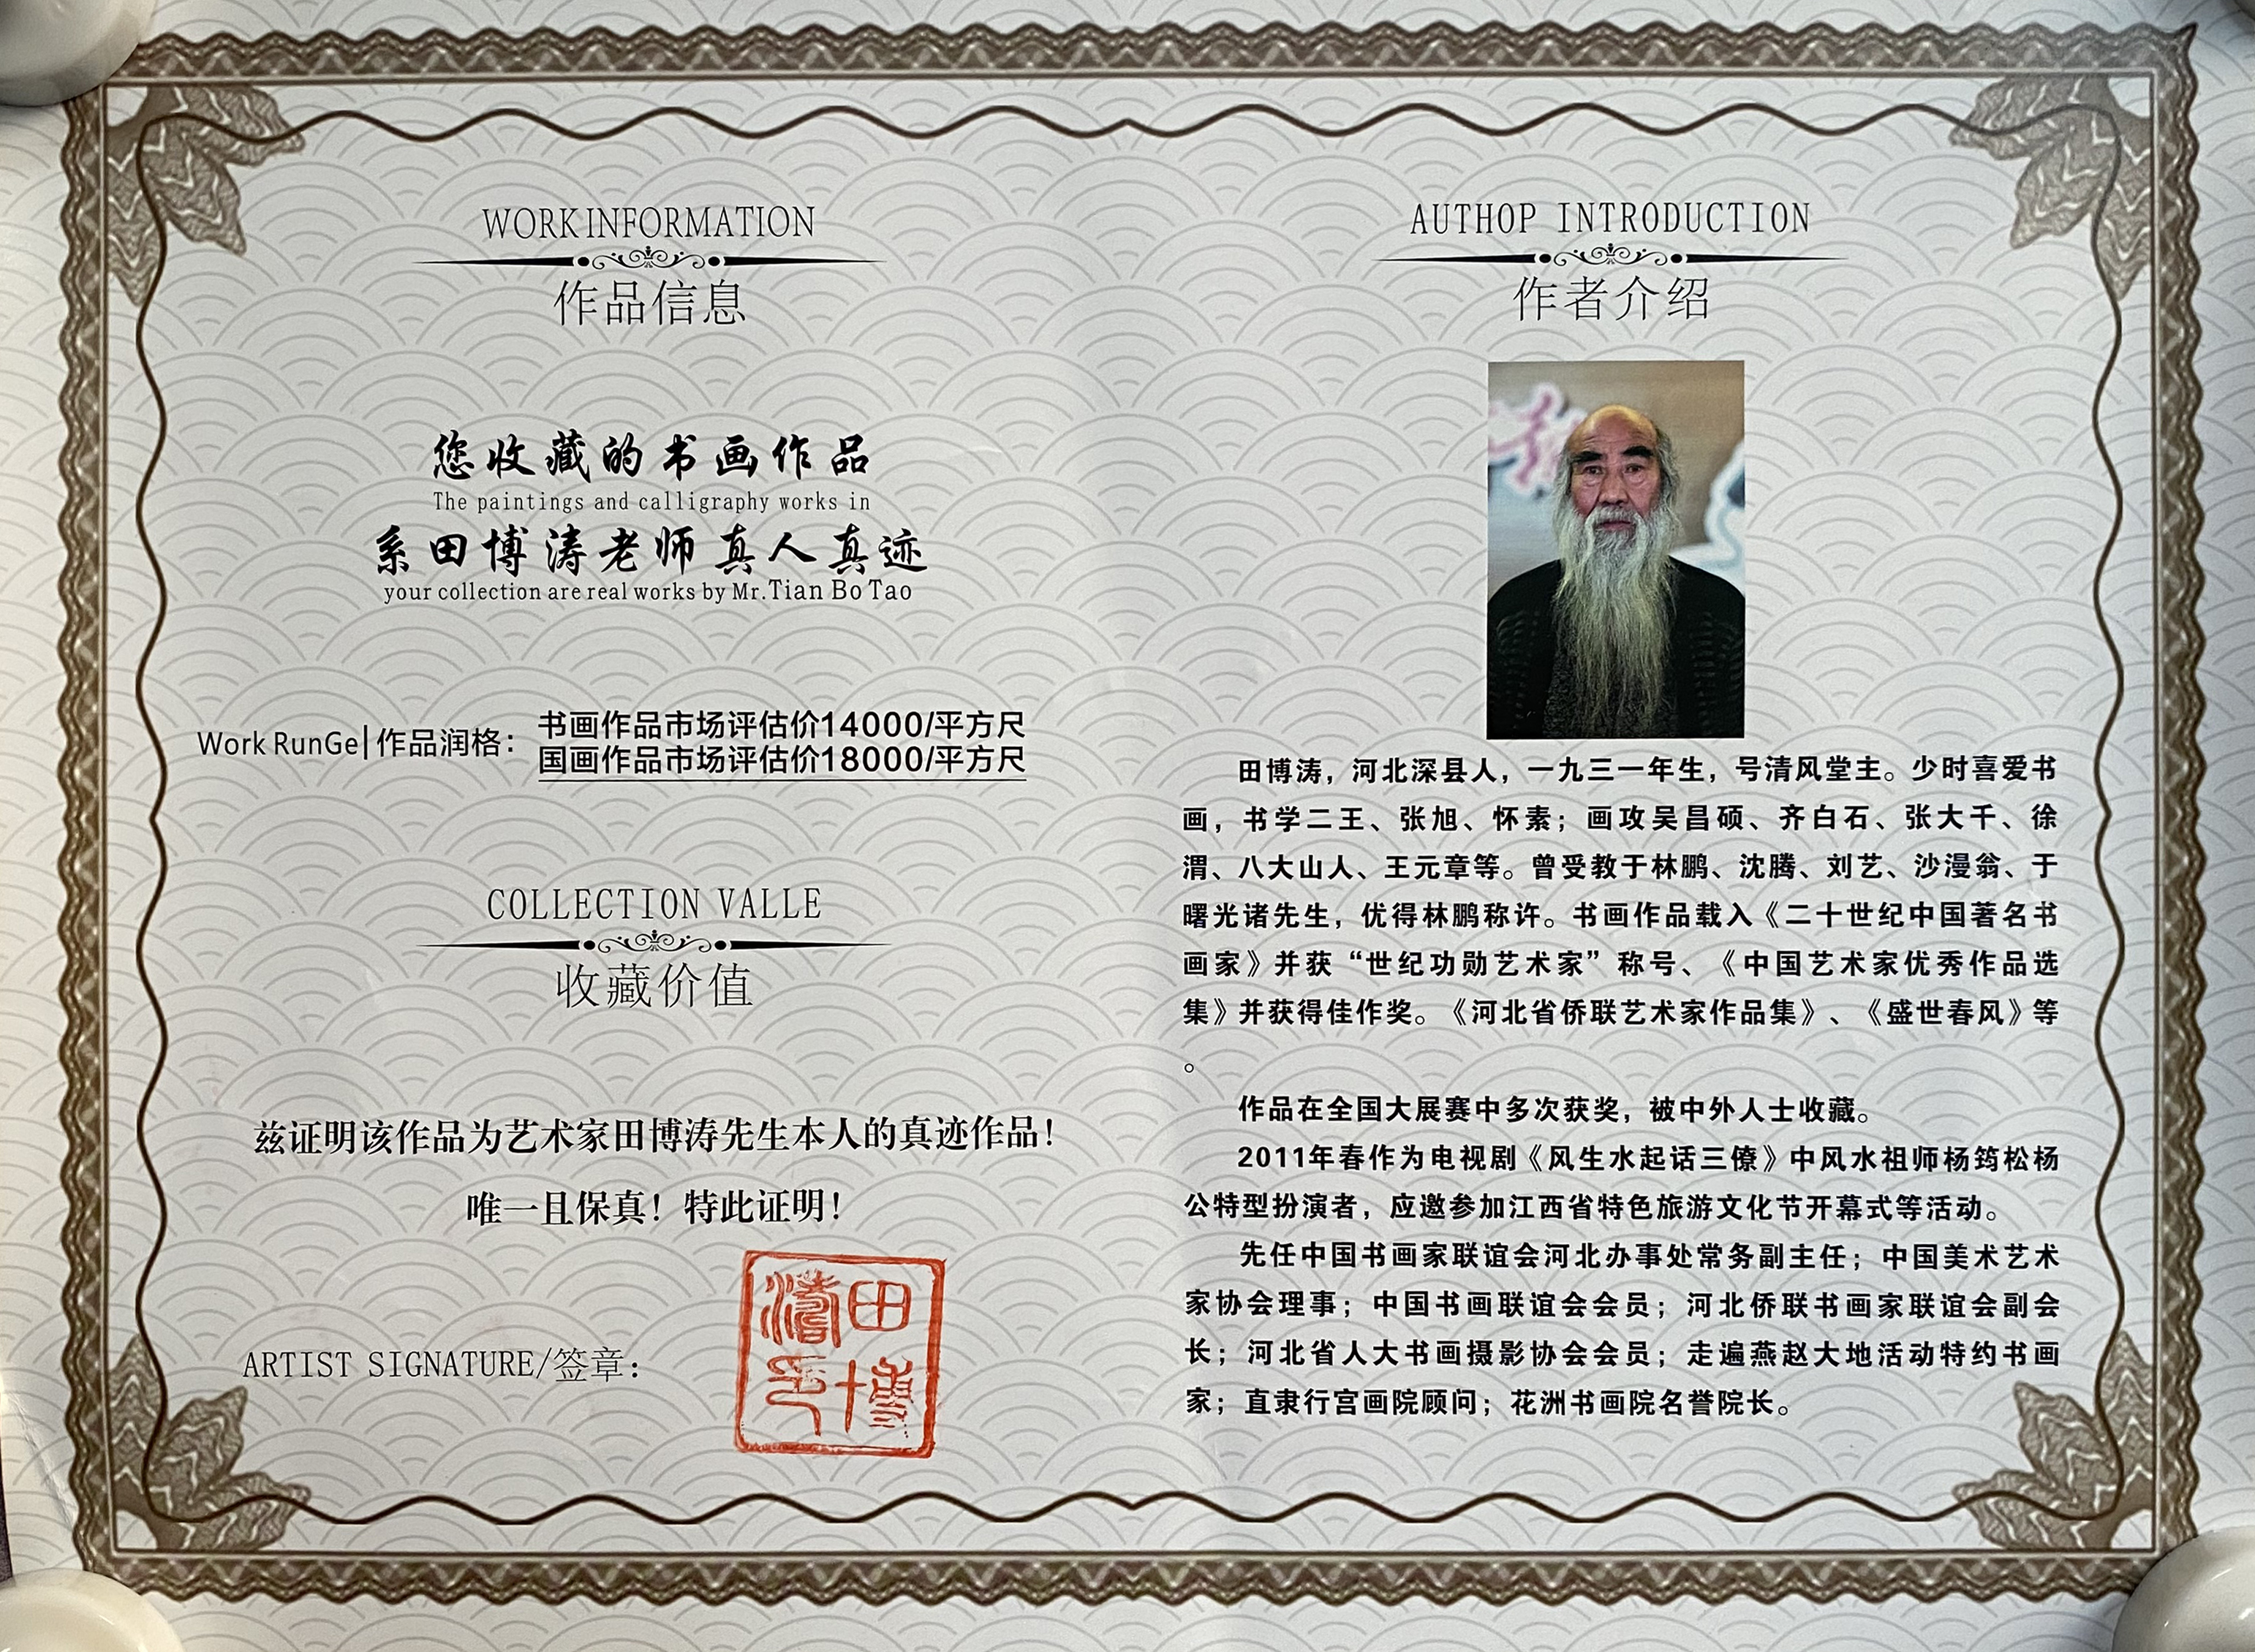 WORK INFORMATION
作品信息
您收藏的书画作品
The paintings and calligraphy works in
系田博涛老师真人真迹
your collection are real works by Mr.Tian Bo Tao
Work RunGe|作品润格：
书画作品市场评估价14000/平方尺
国画作品市场评估价18000/平方尺
COLLECTION VALLE
收藏价值
兹证明该作品为艺术家田博涛先生本人的真迹作品！
唯一且保真！特此证明！
ARTIST SIGNATURE/签章：
田博涛印
AUTHOP INTRODUCTION
作者介绍
田博涛，河北深县人，一九三一年生，号清风堂主。少时喜爱书
画，书学二王、张旭、怀素；画攻吴昌硕、齐白石、张大千、徐
渭、八大山人、王元章等。曾受教于林鹏、沈腾、刘艺、沙漫翁、于
曙光诸先生，优得林鹏称许。书画作品载入《二十世纪中国著名书
画家》并获“世纪功勋艺术家”称号、《中国艺术家优秀作品选
集》并获得佳作奖。《河北省侨联艺术家作品集》、《盛世春风》等
。
作品在全国大展赛中多次获奖，被中外人士收藏。
2011年春作为电视剧《风生水起话三僚》中风水祖师杨筠松杨
公特型扮演者，应邀参加江西省特色旅游文化节开幕式等活动。
先任中国书画家联谊会河北办事处常务副主任；中国美术艺术
家协会理事；中国书画联谊会会员；河北侨联书画家联谊会副会
长；河北省人大书画摄影协会会员；走遍燕赵大地活动特约书画
家；直隶行宫画院顾问；花洲书画院名誉院长。